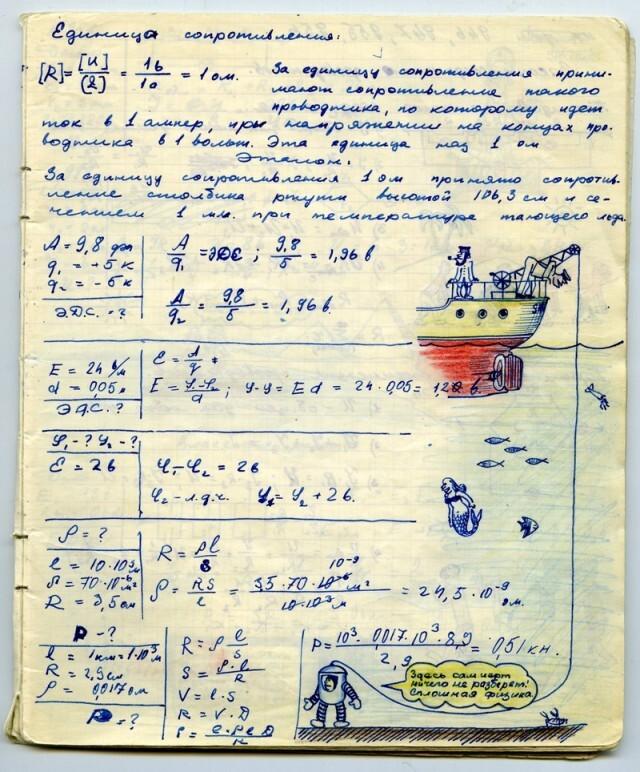 Единица сопротивления:
[R] = [U]/[I] = 1в/1а = 1 ом.
За единицу сопротивления прини-
мают сопротивление такого
проводника, по которому идет
ток в 1 ампер, при напряжении на концах про-
водника в 1 вольт. Эта единица наз 1 ом
Эталон:
За единицу сопротивления 1 ом принято сопротив-
ление столбика ртути высотой 106,3 см и се-
чением 1 мм. при температуре тающего льда.
A = 9,8 дж
q₁ = +5 к
q₂ = -5 к
Э.Д.С. = ?
A/q₁ = ЭДС ; 9,8/5 = 1,96 в
A/q₂ = 9,8/5 = 1,96 в.
E = 24 в/м
d = 0,05 м
Э.Д.С. ?
ε = A/q
E = φ-φ₂/d ; φ-φ = Ed = 24 · 0,05 = 1,2 в.
φ₁ - ? φ₂ - ?
ε = 2в
φ₁ - φ₂ = 2в
φ₂ - л.д.ч. φ₁ = φ₂ + 2в.
ρ = ?
l = 10·10³ м
S = 70·10⁻⁶ м²
R = 3,5 ом
R = ρl/S
ρ = RS/l = 3,5 · 70 · 10⁻⁶ м²/10·10³ м = 24,5 · 10⁻⁹ ом.
10⁻⁹
P - ?
l = 1 км = 1·10³ м
R = 2,9 ом
ρ = 0,017 ом
P = ?
R = ρ l/S
S = ρ·l/R
V = l·S
P = V·D
P = l·ρl D/R
P = 10³ · 0,017 · 10³ · 8,9/2,9 = 0,51 кн.
Здесь сам черт
ничего не разберет!
Сплошная физика.